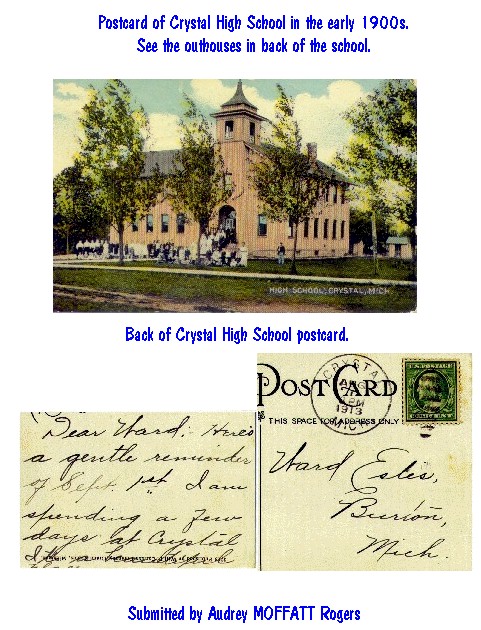 Postcard of Crystal High School in the early 1900s.
See the outhouses in back of the school.
HIGH SCHOOL, CRYSTAL, MICH.
Back of Crystal High School postcard.
POST CARD
CRYSTAL
AUG
PM
1913
MICH
THIS SPACE FOR ADDRESS ONLY
Dear Ward:- Here's
a gentle reminder
of Sept. 1st. I am
spending a few
days at Crystal
Ward Estes,
Burton,
Mich.
Submitted by Audrey MOFFATT Rogers